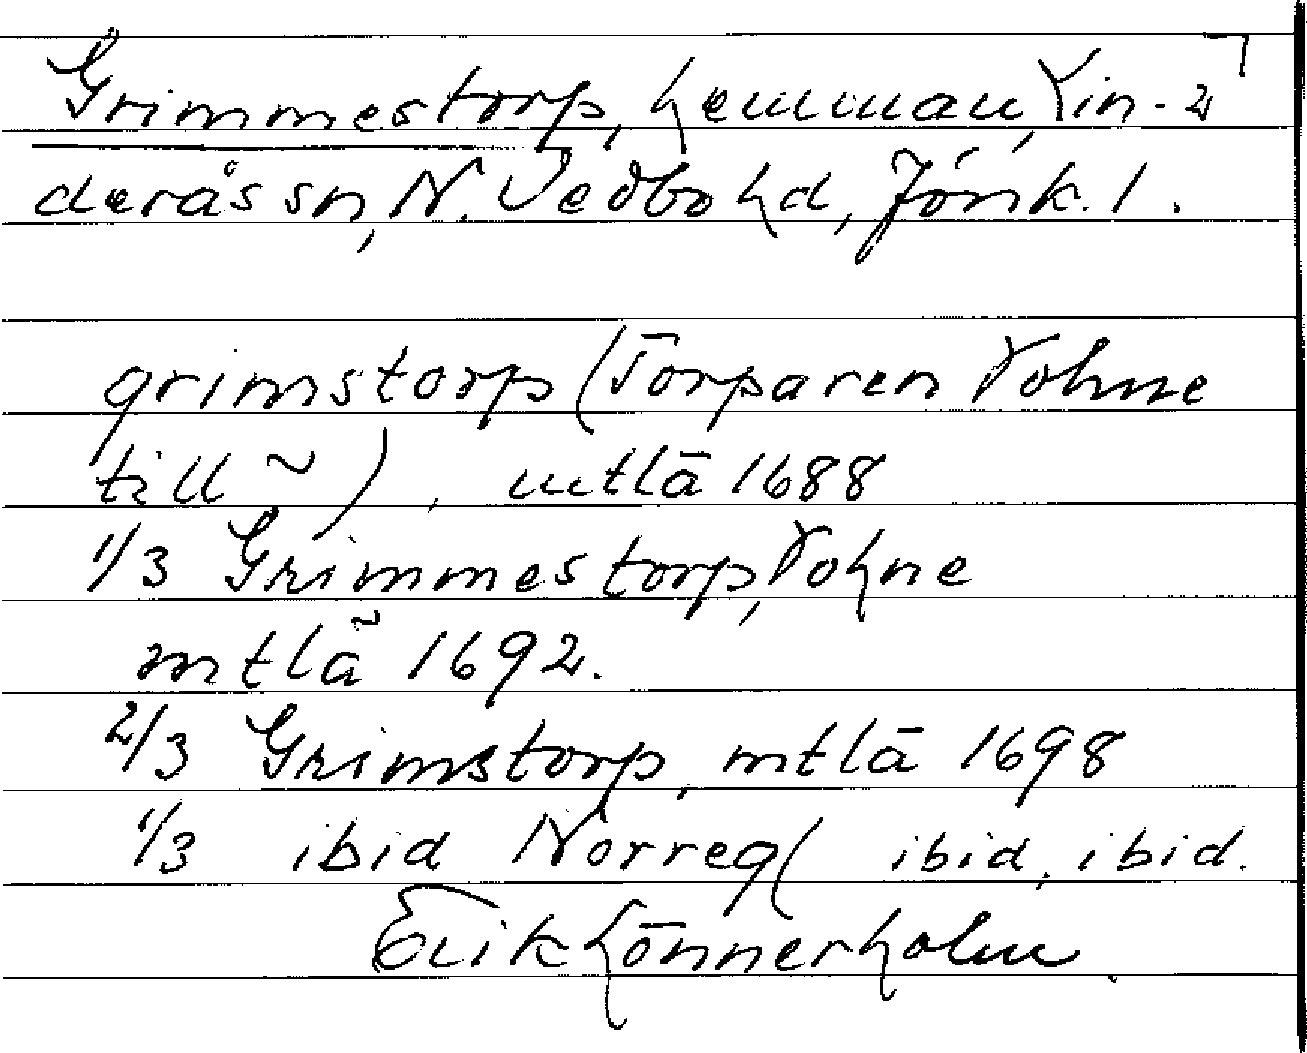 Grimmestorp, hemman, Lin-
derås sn, N. Vedbo hd, Jönk. l.
grimstorp (Torparen Tohne
till ~), mtlä 1688
1/3 Grimmestorp, Tohne
mtlä 1692.
2/3 Grimstorp, mtlä 1698
1/3 ibid Norreg( ibid, ibid.
Erik Lönnerholm.